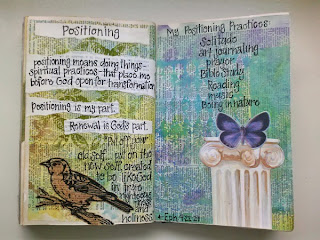 Positioning
positioning means doing things-
spiritual practices-that place me
before God open for transformation
Positioning is my part.
Renewal is God's part.
Put off your
old self... put on the
new self, created
to be like God
in true
righteousness
and
holiness
My Positioning Practices:
solitude
art journaling
prayer
Bible Study
Reading
music
Being in nature
Eph 4:22-24